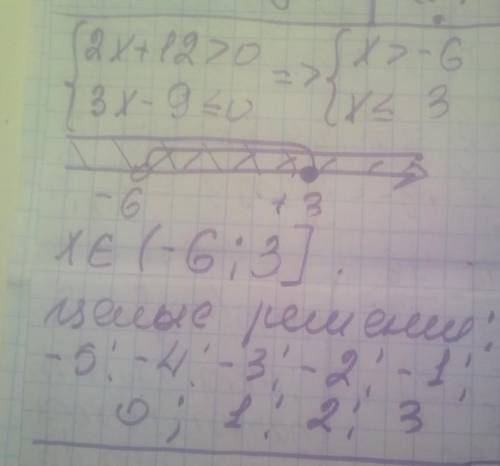 {2x+12>0 => {x>-6
{3x-9≤0 {x≤ 3
-6 +3
x∈(-6;3].
целые решения:
-5; -4; -3; -2; -1;
0; 1; 2; 3